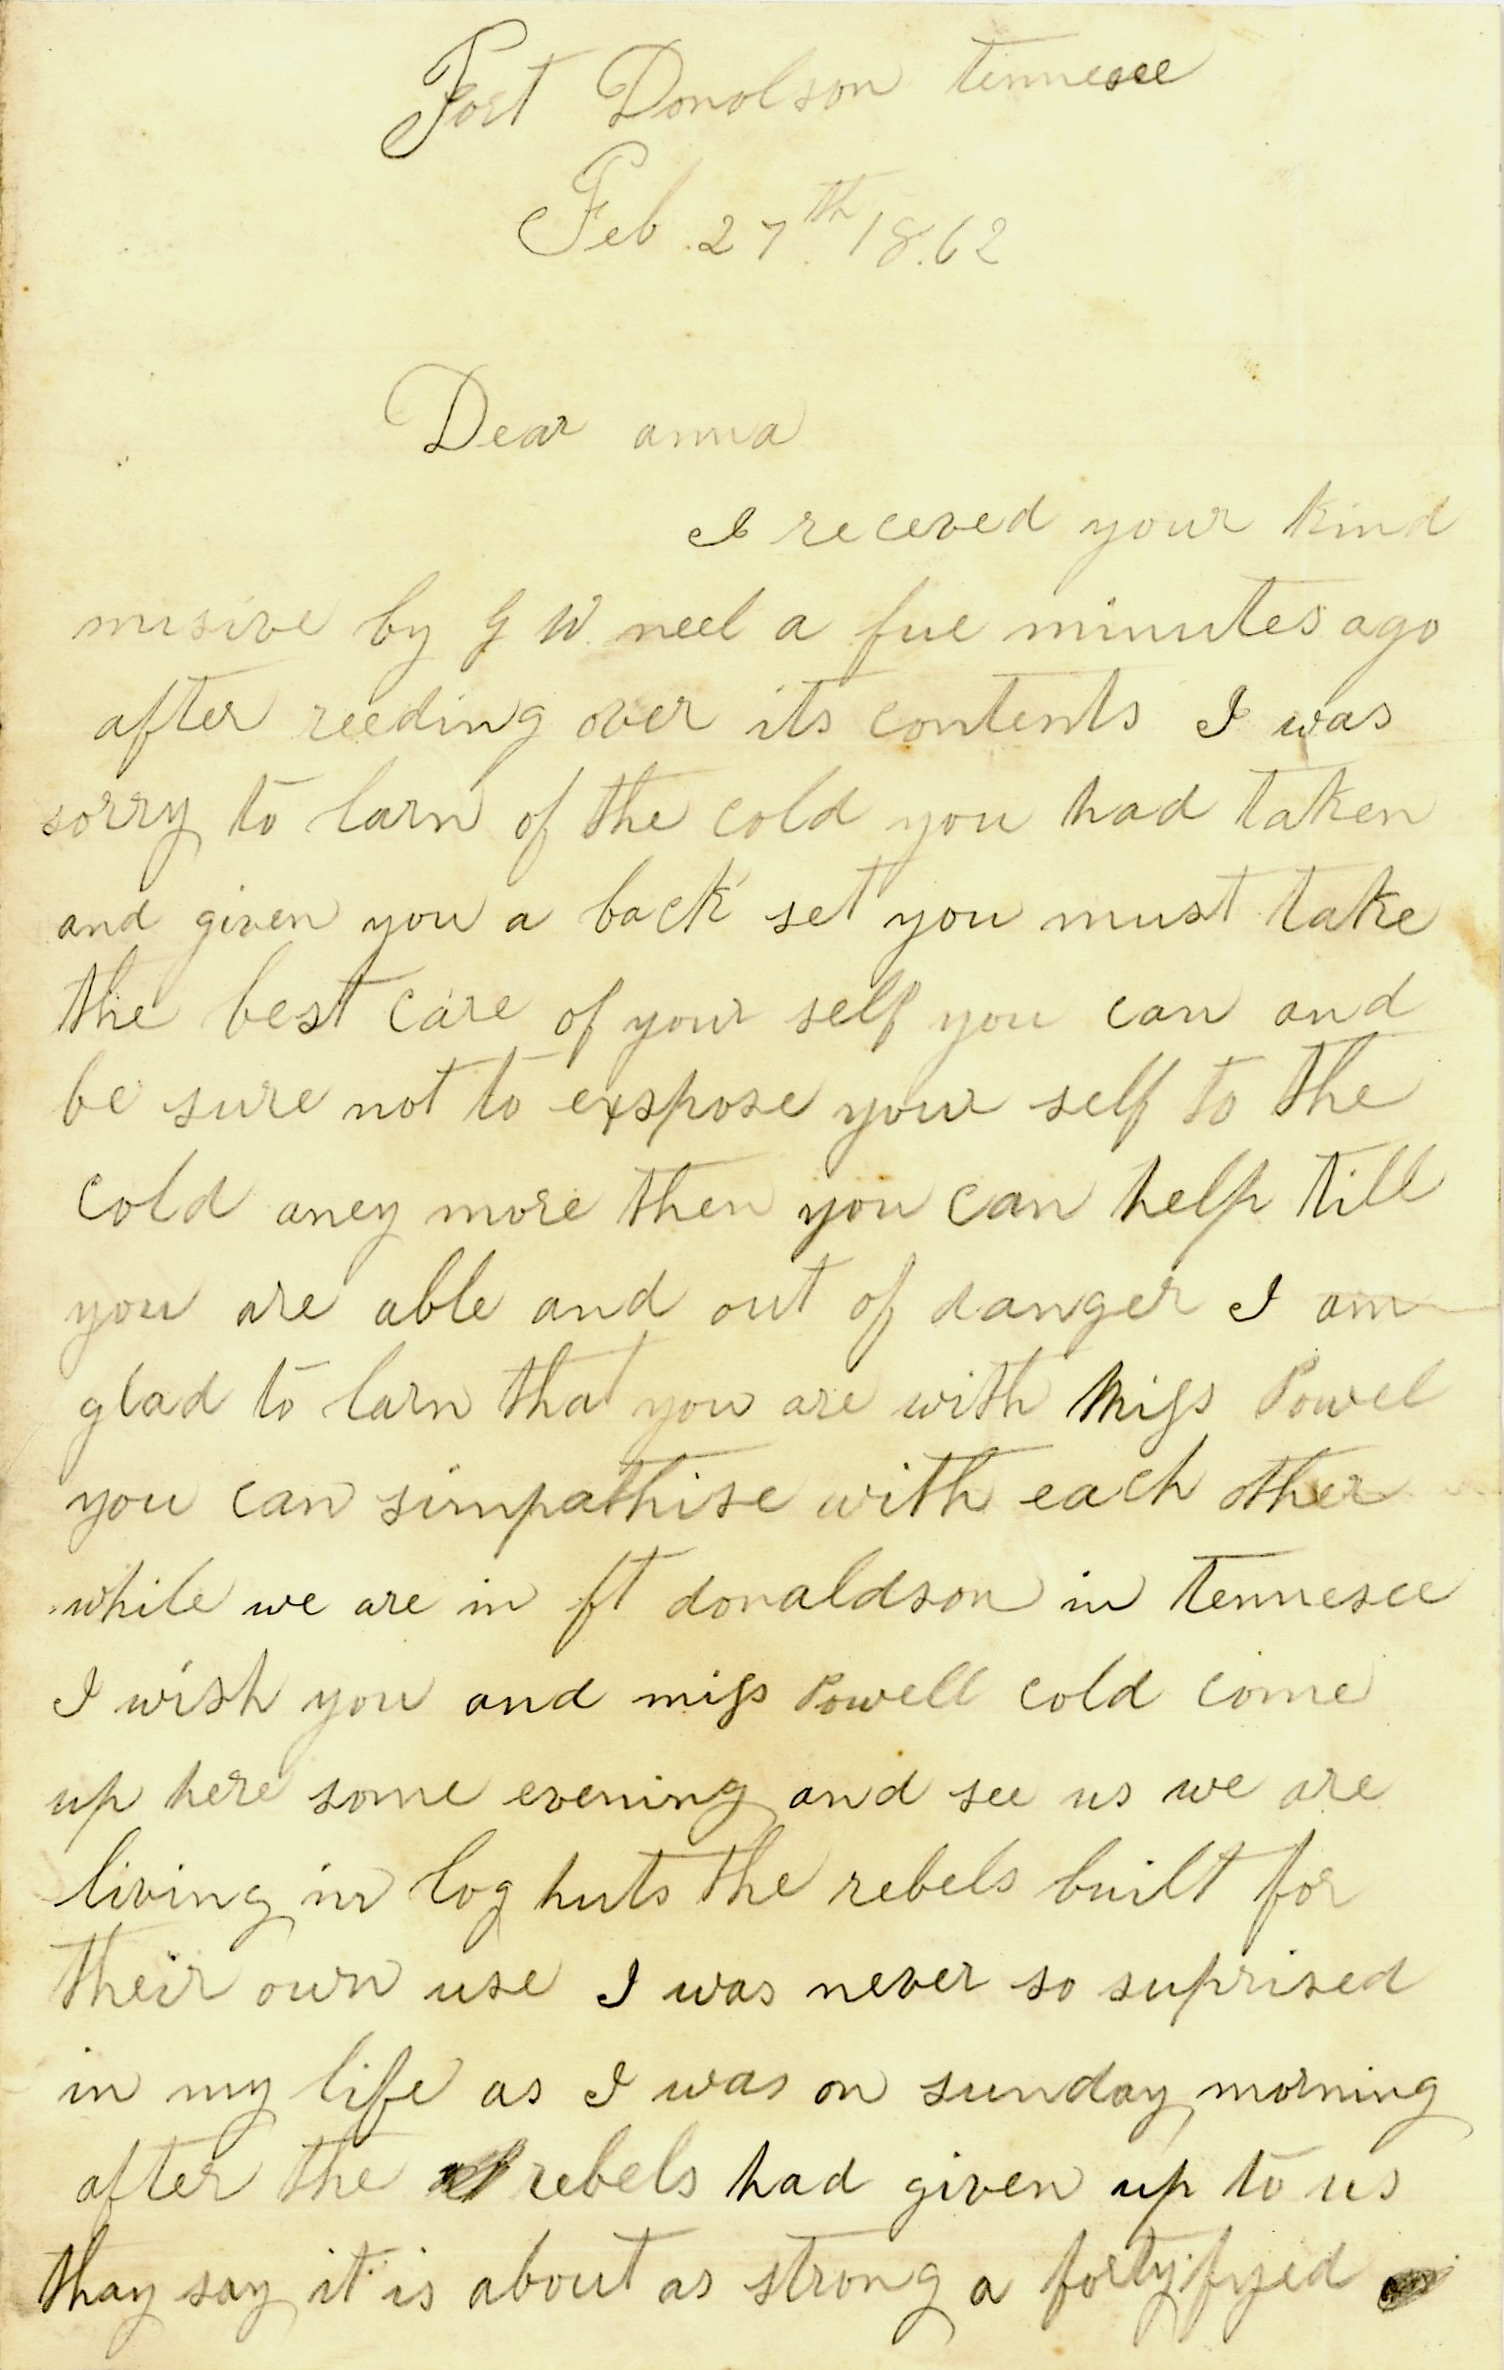 Fort Donolson tennesee
Feb 27th 1862
Dear anna
I receved your kind
misive by G W. neel a fue minutes ago
after reeding over its contents I was
sorry to larn of the cold you had taken
and given you a back set you must take
the best care of your self you can and
be sure not to exspose your self to the
cold aney more then you can help till
you are able and out of danger I am
glad to larn that you are with Miss Powel
you can simpathise with each other
while we are in ft donaldson in tennesee
I wish you and miss Powell cold come
up here some evening and see us we are
living in log huts the rebels built for
their own use I was never so suprised
in my life as I was on sunday morning
after the rebels had given up to us
thay say it is about as strong a fortyfyed